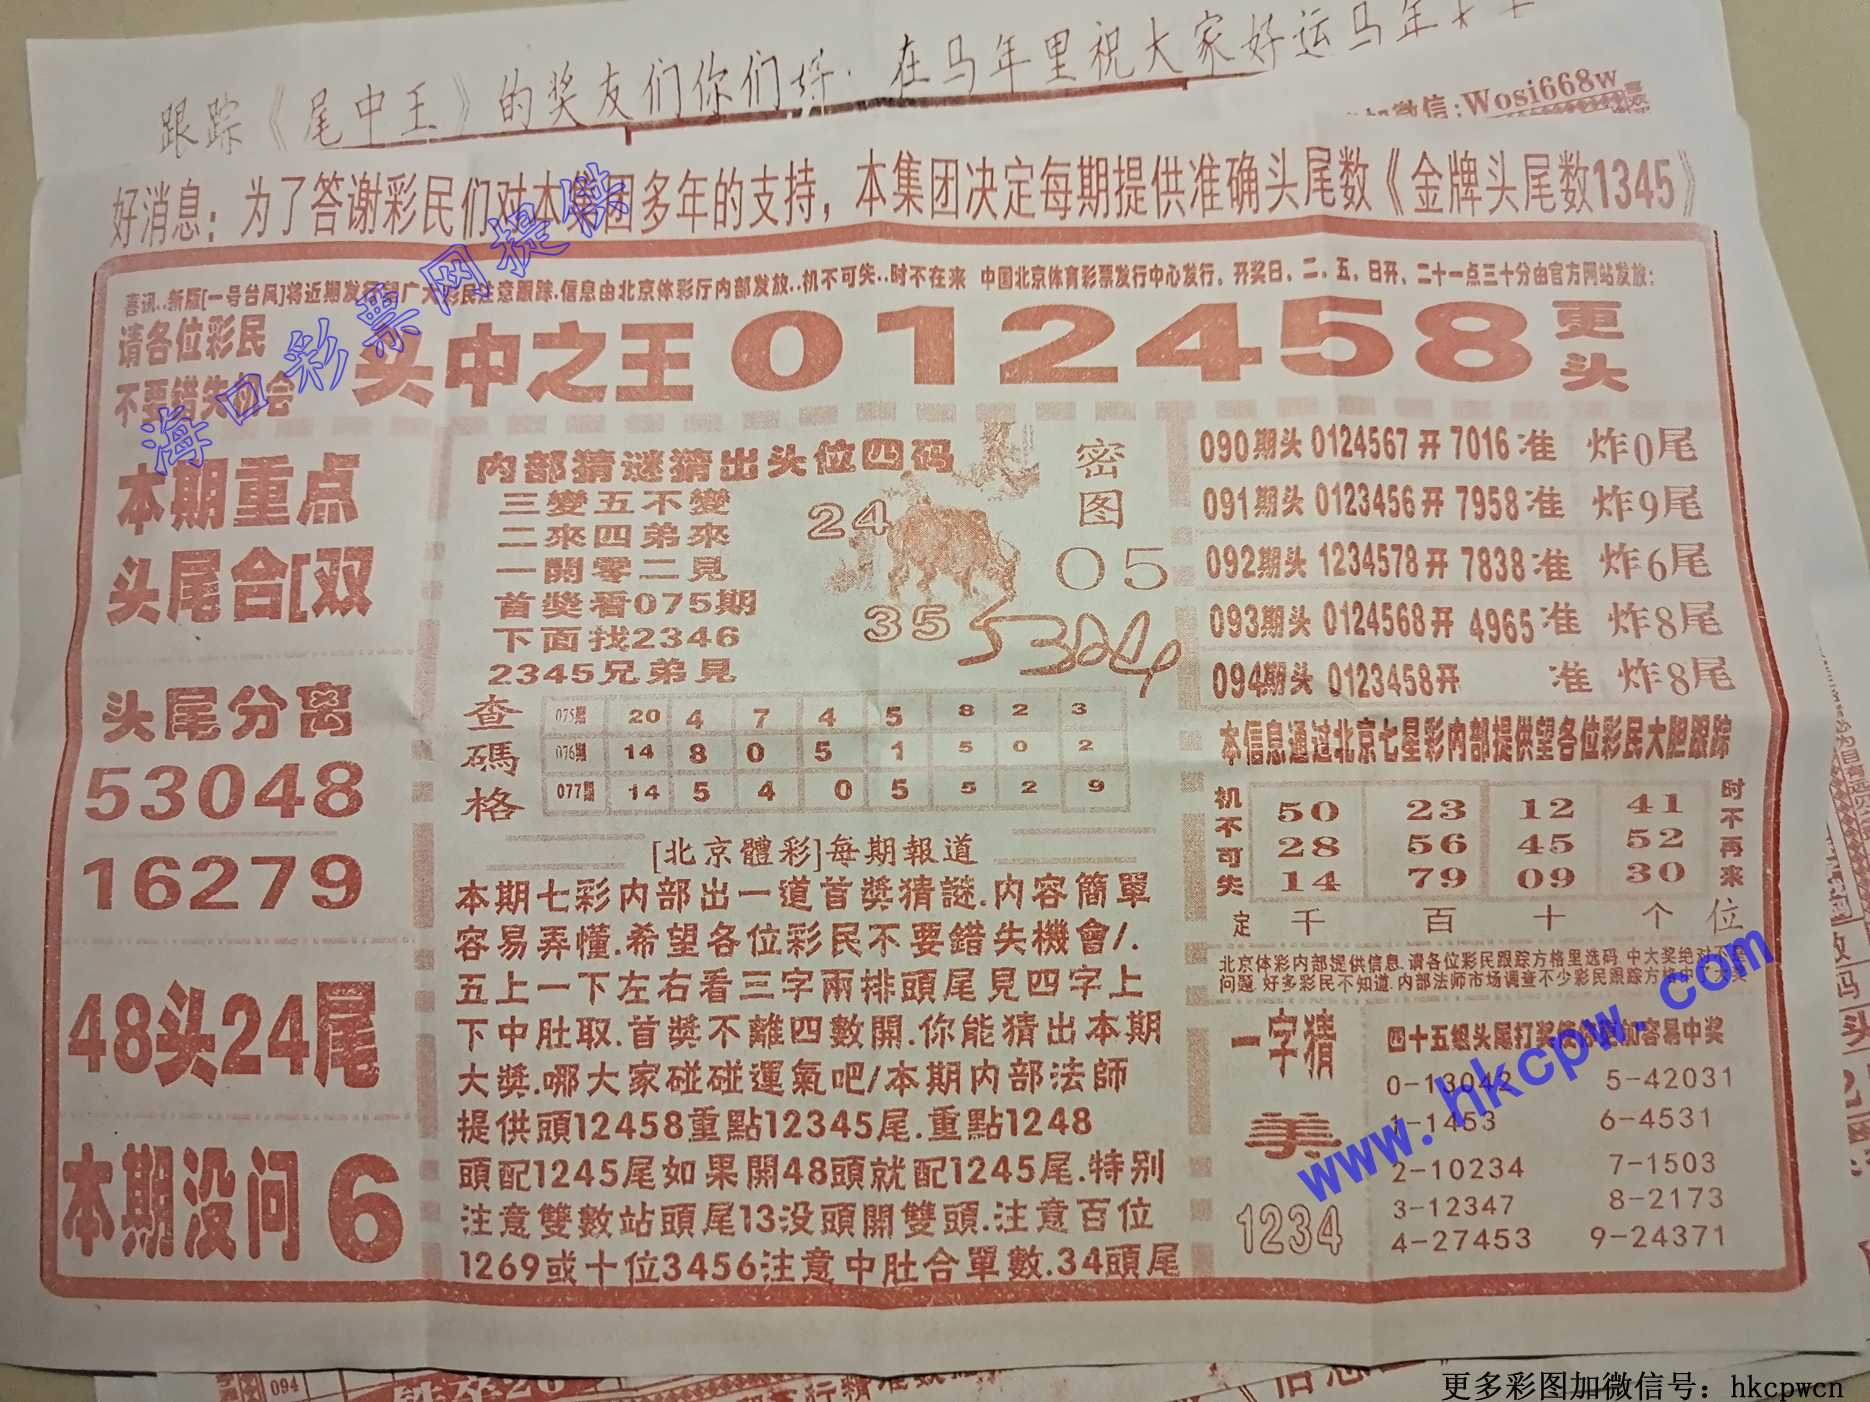 跟踪《尾中王》的奖友们你们好.在马年里祝大家好运马年
微信:Wosi668w
好消息：为了答谢彩民们对本集团多年的支持，本集团决定每期提供准确头尾数《金牌头尾数1345》
喜讯..新版[一号台风]将近期发行望广大彩民注意跟踪.信息由北京体彩厅内部发放..机不可失..时不在来 中国北京体育彩票发行中心发行。开奖日、二、五、日开、二十一点三十分由官方网站发放:
请各位彩民
不要错失机会
头中之王 012458 更头
本期重点
头尾合[双
头尾分离
53048
16279
48头24尾
本期没问 6
内部猜谜猜出头位四码
三變五不變
二來四弟來
一開零二見
首獎看075期
下面找2346
2345兄弟見
密图
24
05
35
5324
查碼格
075期 20 4 7 4 5 8 2 3
076期 14 8 0 5 1 5 0 2
077期 14 5 4 0 5 5 2 9
[北京體彩]每期報道
本期七彩内部出一道首獎猜謎.内容簡單
容易弄懂.希望各位彩民不要錯失機會/.
五上一下左右看三字兩排頭尾見四字上
下中肚取.首獎不離四數開.你能猜出本期
大獎.哪大家碰碰運氣吧/本期内部法師
提供頭12458重點12345尾.重點1248
頭配1245尾如果開48頭就配1245尾.特别
注意雙數站頭尾13没頭開雙頭.注意百位
1269或十位3456注意中肚合單數.34頭尾
090期头 0124567 开 7016 准 炸0尾
091期头 0123456 开 7958 准 炸9尾
092期头 1234578 开 7838 准 炸6尾
093期头 0124568 开 4965 准 炸8尾
094期头 0123458 开 准 炸8尾
本信息通过北京七星彩内部提供望各位彩民大胆跟踪
机不可失
50 23 12 41
28 56 45 52
14 79 09 30
时不再来
定 千 百 十 个 位
北京体彩内部提供信息.请各位彩民跟踪方格里选码.中大奖绝对不是
问题.好多彩民不知道.内部法师市场调查不少彩民跟踪方格中大奖
一字猜
美
1234
四十五组头尾打奖使你更加容易中奖
0-13042 5-42031
1-1453 6-4531
2-10234 7-1503
3-12347 8-2173
4-27453 9-24371
海口彩票网提供
www.hkcpw.com
094
更多彩图加微信号：hkcpwcn